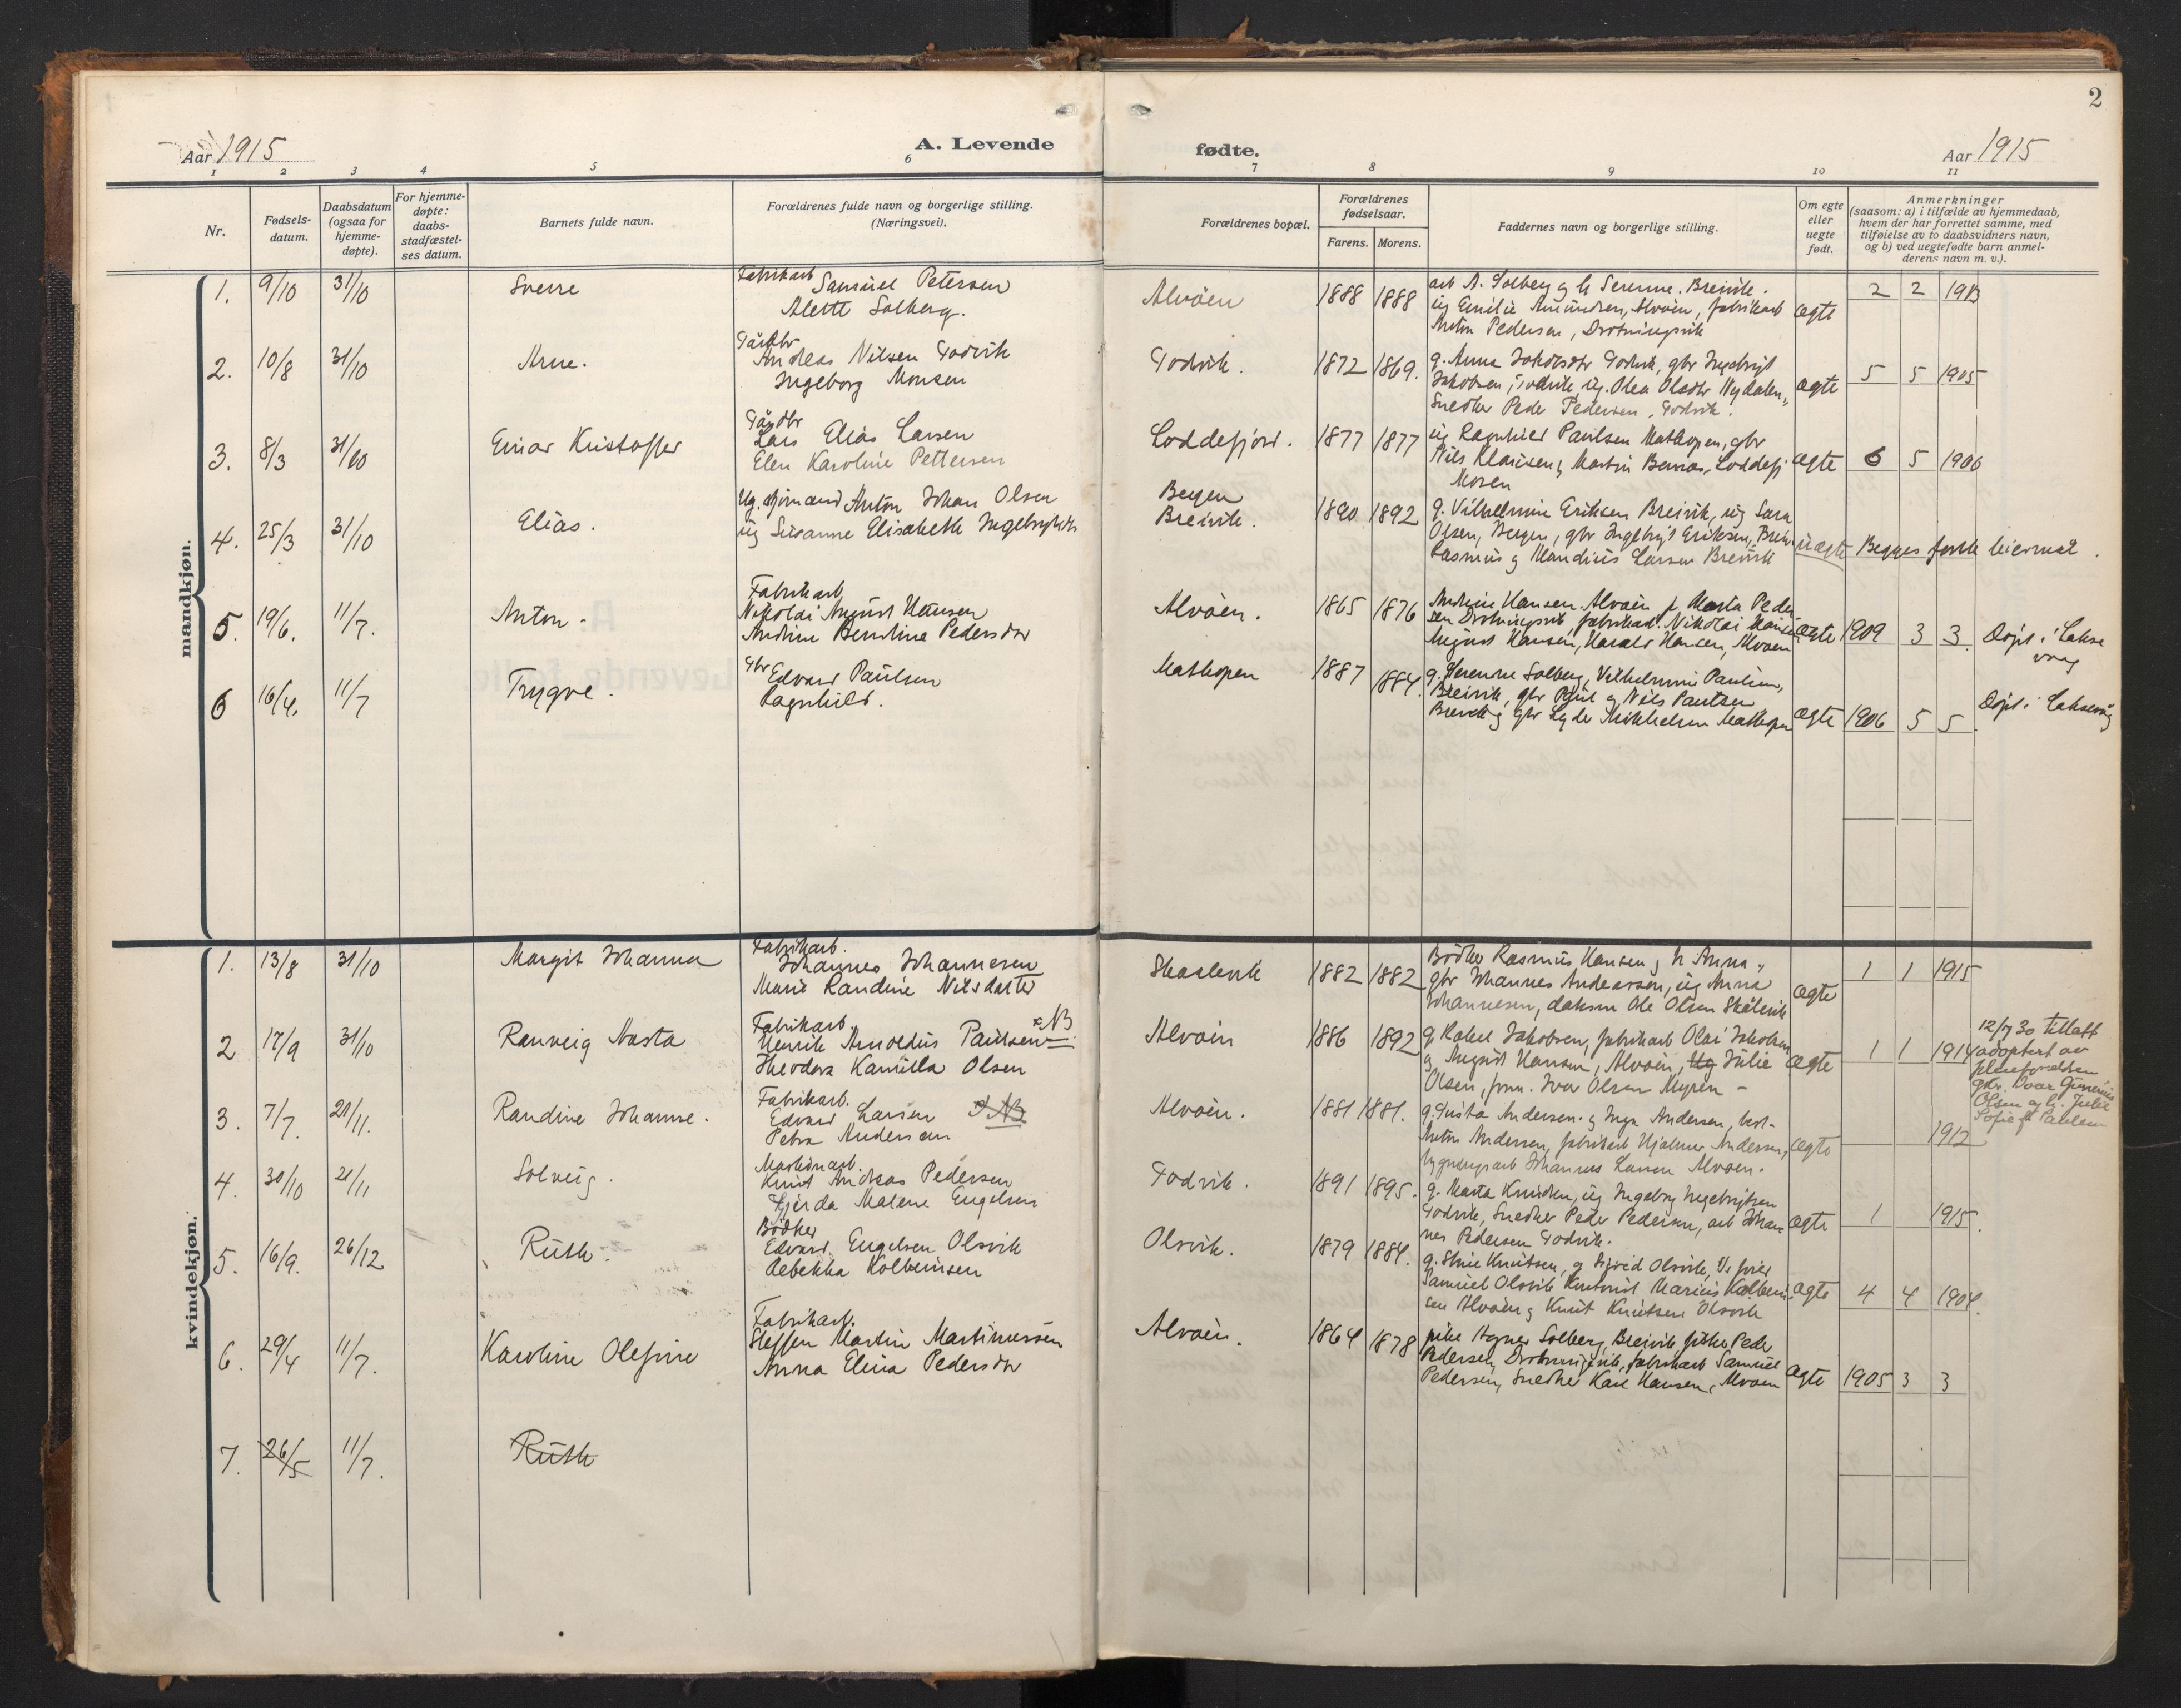 2
Aar 1915
A. Levende
fødte.
Aar 1915
1 2 3 4 5 6 7 8 9 10 11
Nr.
Fødsels-
datum.
Daabsdatum
(ogsaa for
hjemme-
døpte).
For hjemme-
døpte:
daabs-
stadfæstel-
ses datum.
Barnets fulde navn.
Forældrenes fulde navn og borgerlige stilling.
(Næringsvei).
Forældrenes bopæl.
Forældrenes
fødselsaar.
Farens. Morens.
Faddernes navn og borgerlige stilling.
Om egte
eller
uegte
født.
Anmerkninger
(saasom: a) i tilfælde av hjemmedaab,
hvem der har forrettet samme, med
tilføielse av to daabsvidners navn,
og b) ved uegtefødte barn anmel-
derens navn m. v.).
mandkjøn.
1. 9/10 31/10 Sverre
Fabrikarb
Samuel Petersen
Alette Solberg.
Alvøen 1888 1888
arb A. Solberg g h Serenne. Breivik.
ug Emilie Amundsen, Alvøen, fabrikarb
Anton Pedersen, Drotningsvik
ægte 2 2 1913
2. 10/8 31/10 Arne.
Gårdbr
Andreas Nilsen Godvik
Ingeborg Monsen
Godvik. 1872 1869.
g. Anna Jakobsdtr Godvik, gbr Ingebrigt
Jakobsen, Godvik, ug. Olea Olsdtr Nydalen,
Snedker Peder Pedersen, Godvik.
ægte 5 5 1905
3. 8/3 31/10 Einar Kristoffer
Gårdbr
Lars Elias Larsen
Elen Karoline Pettersen
Loddefjord. 1877 1877
ug Ragnhild Paulsen Mathopen, gbr
Nils Klausen, Martin Loddefj
Mosen
ægte 6 5 1906
4. 25/3 31/10 Elias.
Ug. sjømand Anton Johan Olsen
ug Susanne Elisabeth Ingebrigtsdtr
Bergen
Breivik. 1890 1892
g. Vilhelmine Eriksen Breivik, ug Sara
Olsen, Bergen, gbr Ingebrigt Eriksen, Breiv.
Rasmus g Klandius Larsen Breivik
uægte Begges første leiermål.
5. 19/6. 11/7. Anton.
Fabrikarb
Nikolai August Hansen
Andrine Berntine Pedersdtr
Alvøen. 1865 1876
Andrine Hansen. Alvøen, p Marta Peder
sen Drotningsvik, fabrikarb. Nikolai Hansen
August Hansen, Harald Hansen, Alvøen
ægte 1909 3 3. Døpt i Lakse
våg
6 16/4. 11/7 Trygve.
Gbr Edvard Paulsen
Ragnhild.
Mathopen 1887 1884.
g. Serenne Solberg, Vilhelmine Paulsen,
Breivik, gbr Paul g Nils Paulsen
Breivik g gbr Lyder Mikkelsen Mathopen
ægte 1906 5 5. Døpt i Laksevåg
kvindekjøn.
1. 13/8 31/10 Margit Johanna
Fabrikarb.
Johannes Johannesen
Marie Randine Nilsdatter
Skaalevik 1882 1882
Bødker Rasmus Hansen g h Anna,
gbr Johannes Andeassen, ug Anna
Johannesen, Ole Olsen Skålevik
ægte 1 1 1915
2 17/9 31/10 Ranveig Nasta
Fabrikarb.
Henrik Arnoldus Paulsen NB
Theodora Kamilla Olsen
Alvøen 1886 1892
g. Rakel Jakobsen, fabrikarb Olai Jakobsen
g August Hansen, Alvøen, Ug Julie
Olsen, Ivar Olsen Myren –
ægte 1 1 1914
12/7 30 tillatt
adoptert av
pleieforældre
gbr. Ivar Gunerius
Olsen og h. Julie
Sofie f. Paulsen
3. 7/7. 21/11. Randine Johanne.
Fabrikarb.
Edvard Larsen NB
Petra Andersen
Alvøen. 1881 1881.
g. Gusta Andersen. g Inga Andersen, best.
Anton Andersen, fabrikarb Hjalmar Andersen,
bygningsarb Johannes Larsen Alvøen.
ægte 1912
4. 30/10 21/11 Solveig.
Maskinarb.
Knut Andreas Pedersen
Gjerda Malene Engelsen
Godvik. 1891 1895.
g. Marta Knudsen, ug Ingeborg Ingebrigtsen
Godvik, Snedker Peder Pedersen, arb Johan
nes Pedersen Godvik.
ægte 1 1915.
5. 16/9. 26/12 Ruth.
Bødker
Edvard Engelsen Olsvik
Rebekka Kolbeinsen
Olsvik. 1879 1884.
g. Stine Knutsen, g Sigrid Olsvik,
Samuel Olsvik Marius Kolbein
sen Alvøen g Knut Knutsen Olsvik
ægte 4 4 1904.
6. 29/4 11/7. Karoline Olefine
Fabrikarb.
Steffen Martin Martinussen
Anna Elina Pedersdtr
Alvøen. 1864 1878
pike Agnes Solberg, Breivik, fisker Peder
Pedersen, Drotningsvik, fabrikarb Samuel
Pedersen, Snedker Karl Hansen, Alvøen
ægte 1905 3 3
7. 26/5 11/7. Ruth